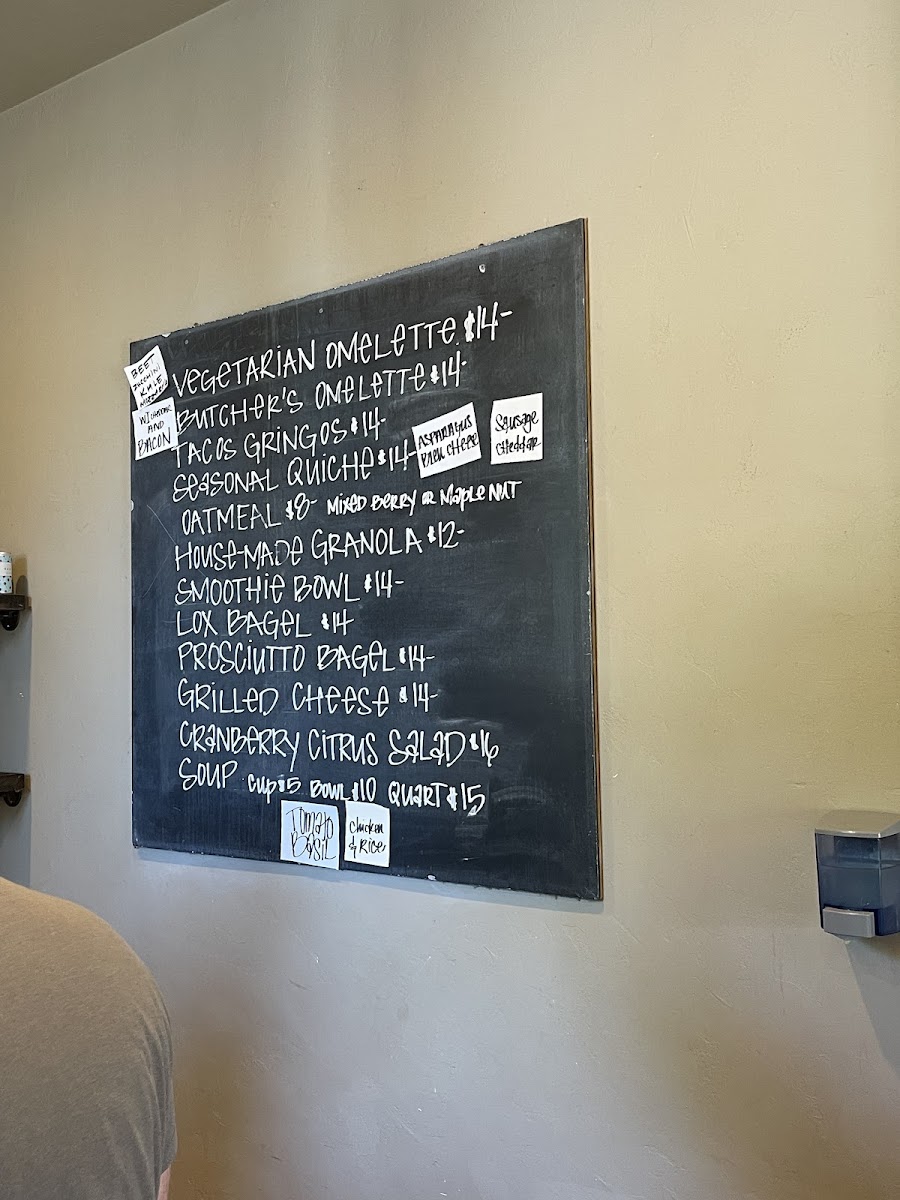 VEGETARIAN OMELETTE $14-
BEET
ZUCCHINI
KALE
BUTCHER'S OMELETTE $14-
W/CHEDDAR
AND
BACON
TACOS GRINGOS $14-
SEASONAL QUICHE $14-
ASPARAGUS
BLEU CHEESE
Sausage
Cheddar
OATMEAL $8- MIXED BERRY OR MAPLE NUT
HOUSE-MADE GRANOLA $12-
SMOOTHIE BOWL $14-
LOX BAGEL $14
PROSCIUTTO BAGEL $14-
GRILLED CHEESE $14-
CRANBERRY CITRUS SALAD $16
SOUP CUP $5 BOWL $10 QUART $15
TOMATO
BASIL
Chicken
& Rice